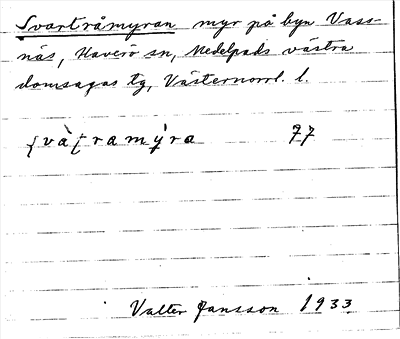 Svartråmyran myr på byn Vass-
näs, Haverö sn, Medelpads västra
domsagas tg, Västernorrl. l.
ʃvàʈramy̆ra 77
Valter Jansson 1933